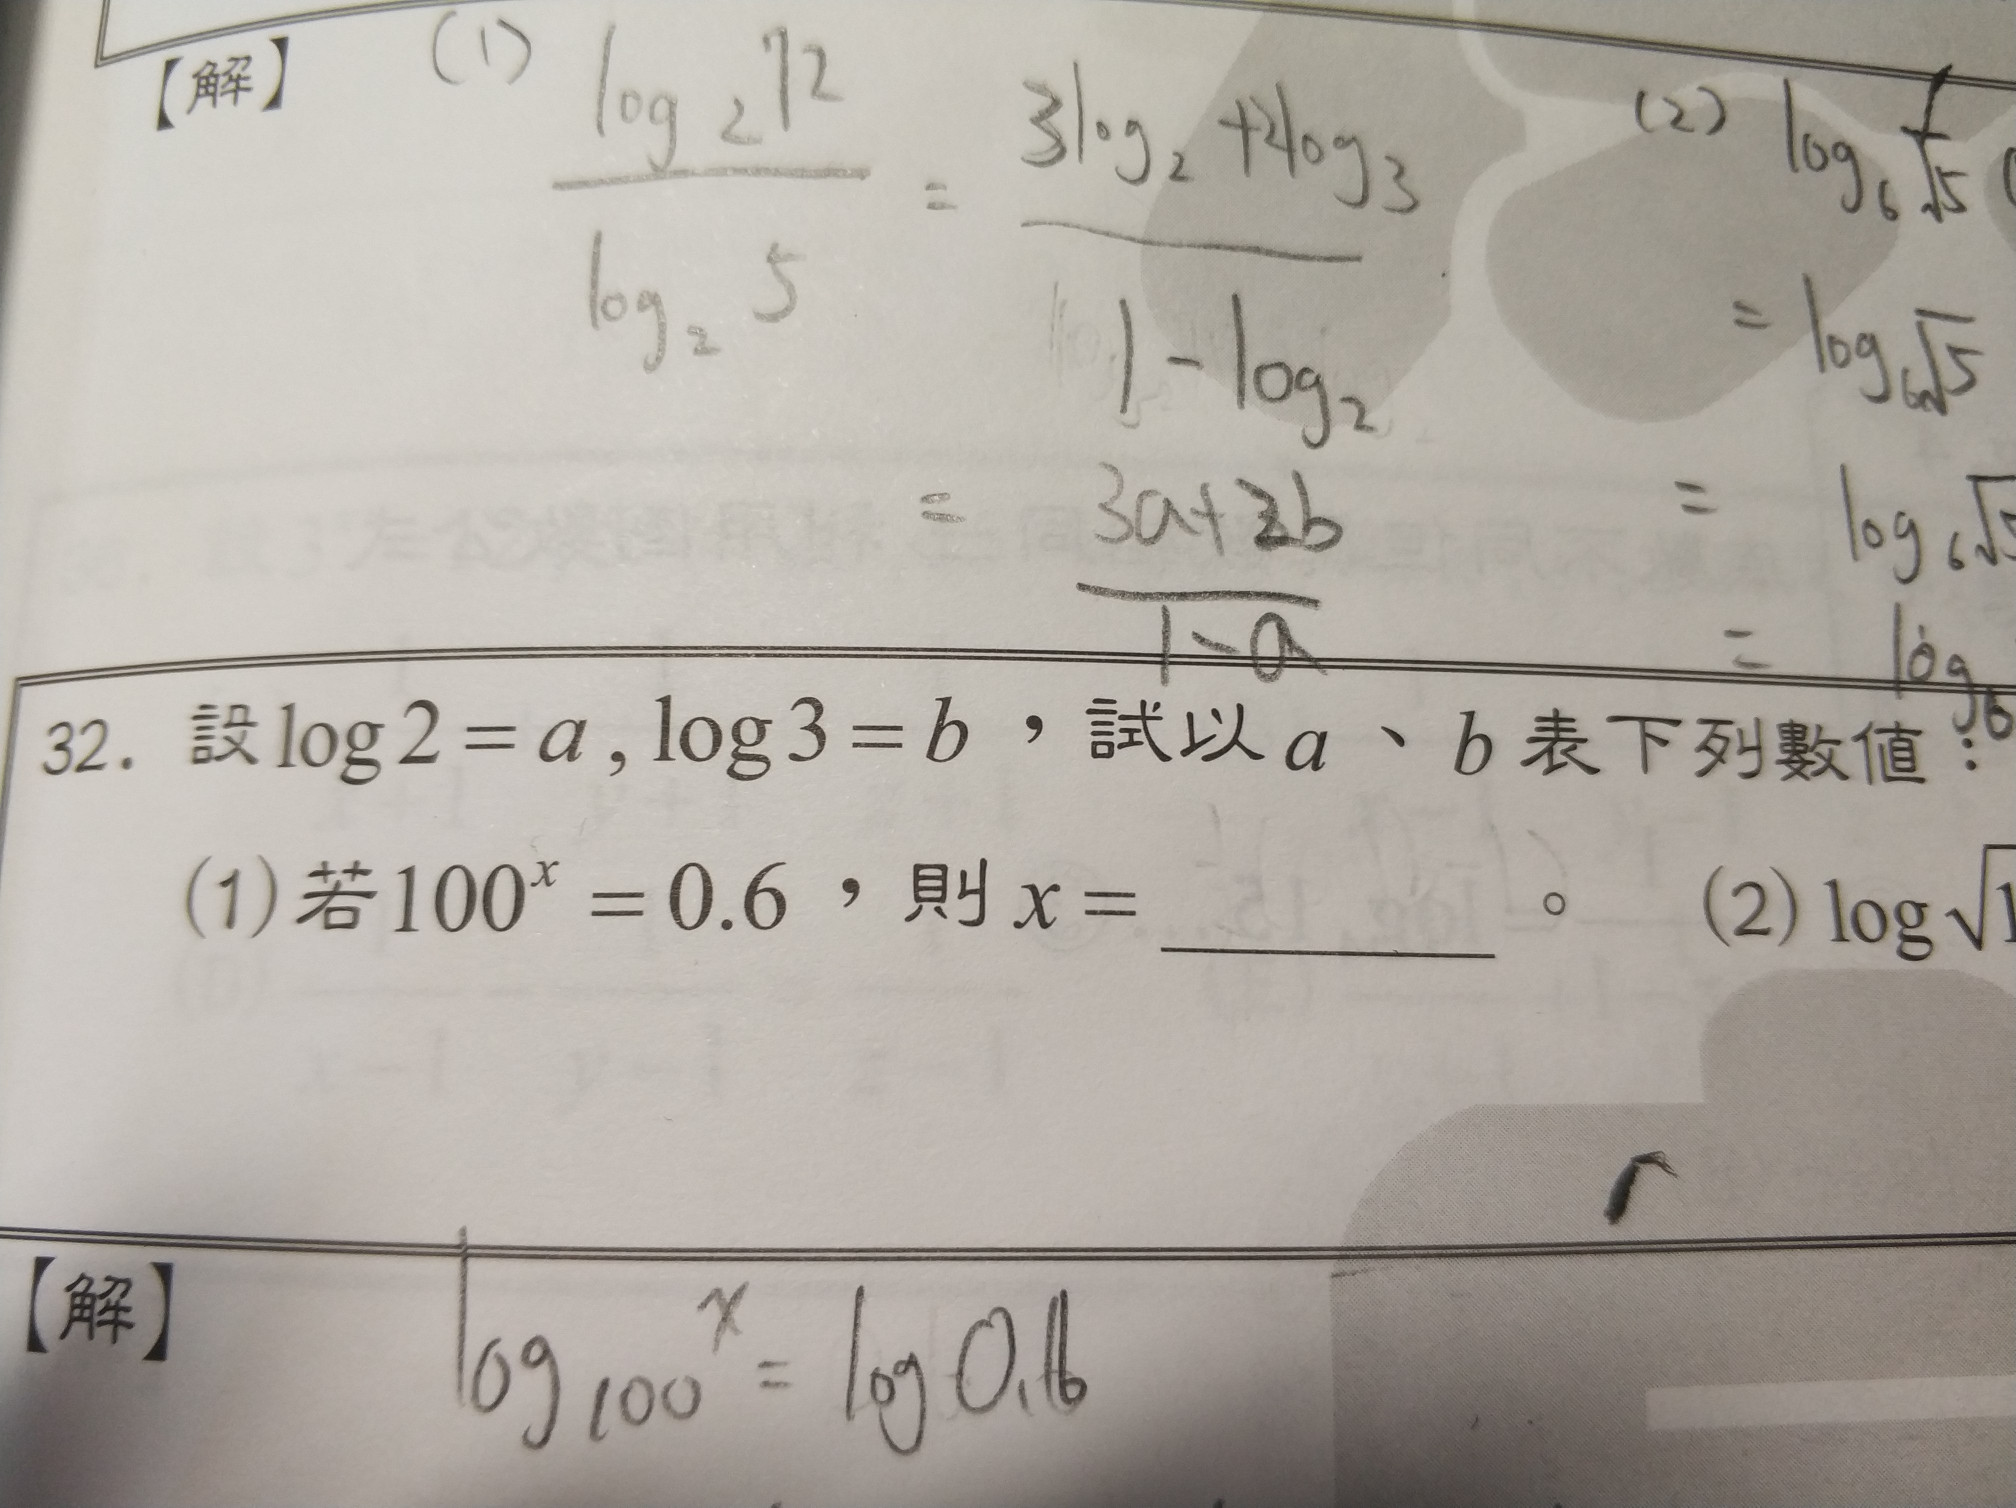 【解】 (1) log₂72 / log₂5 = 3log₂+2log₃ / 1-log₂
= 3a+2b / 1-a
(2) log₆√5
= log₆√5
= log₆√
= log₆
32. 設 log2 = a , log3 = b ，試以 a 、 b 表下列數值：
(1) 若 100ˣ = 0.6 ，則 x = ______ 。 (2) log√1
【解】 log₁₀₀ˣ = log 0.6